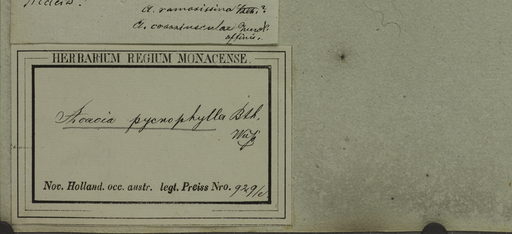 A. ramosissima Bth.?
A. coarctusculae
affinis.
HERBARIUM REGIUM MONACENSE.
Acacia pycnophylla Bth.
Nov. Holland. occ. austr. legt. Preiss Nro. 929/c